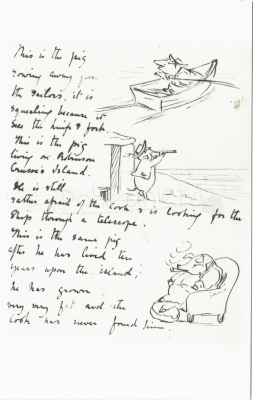 This is the pig
rowing away from
the sailors, it is
squealing because it
sees the knife & fork.
This is the pig
living on Robinson
Crusoe's Island.
He is still
rather afraid of the cook & is looking for the
ships through a telescope.
This is the same pig
after he has lived ten
years upon the island;
he has grown
very very fat and the
cook has never found him.